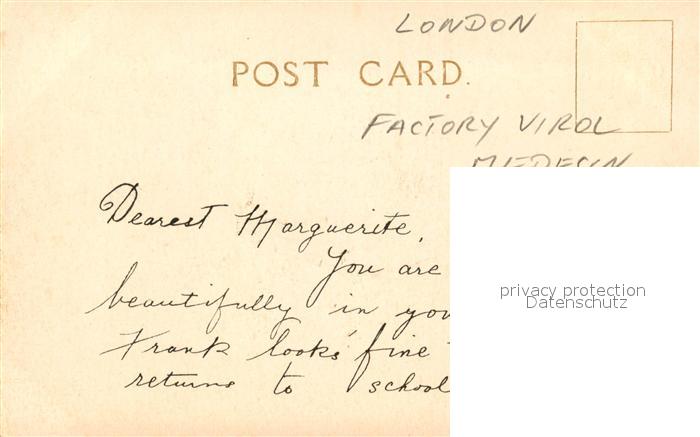 LONDON
POST CARD.
FACTORY VIROL
MEDESIN
Dearest Marguerite,
You are
beautifully in
Frank looks fine
returns to school
privacy protection
Datenschutz